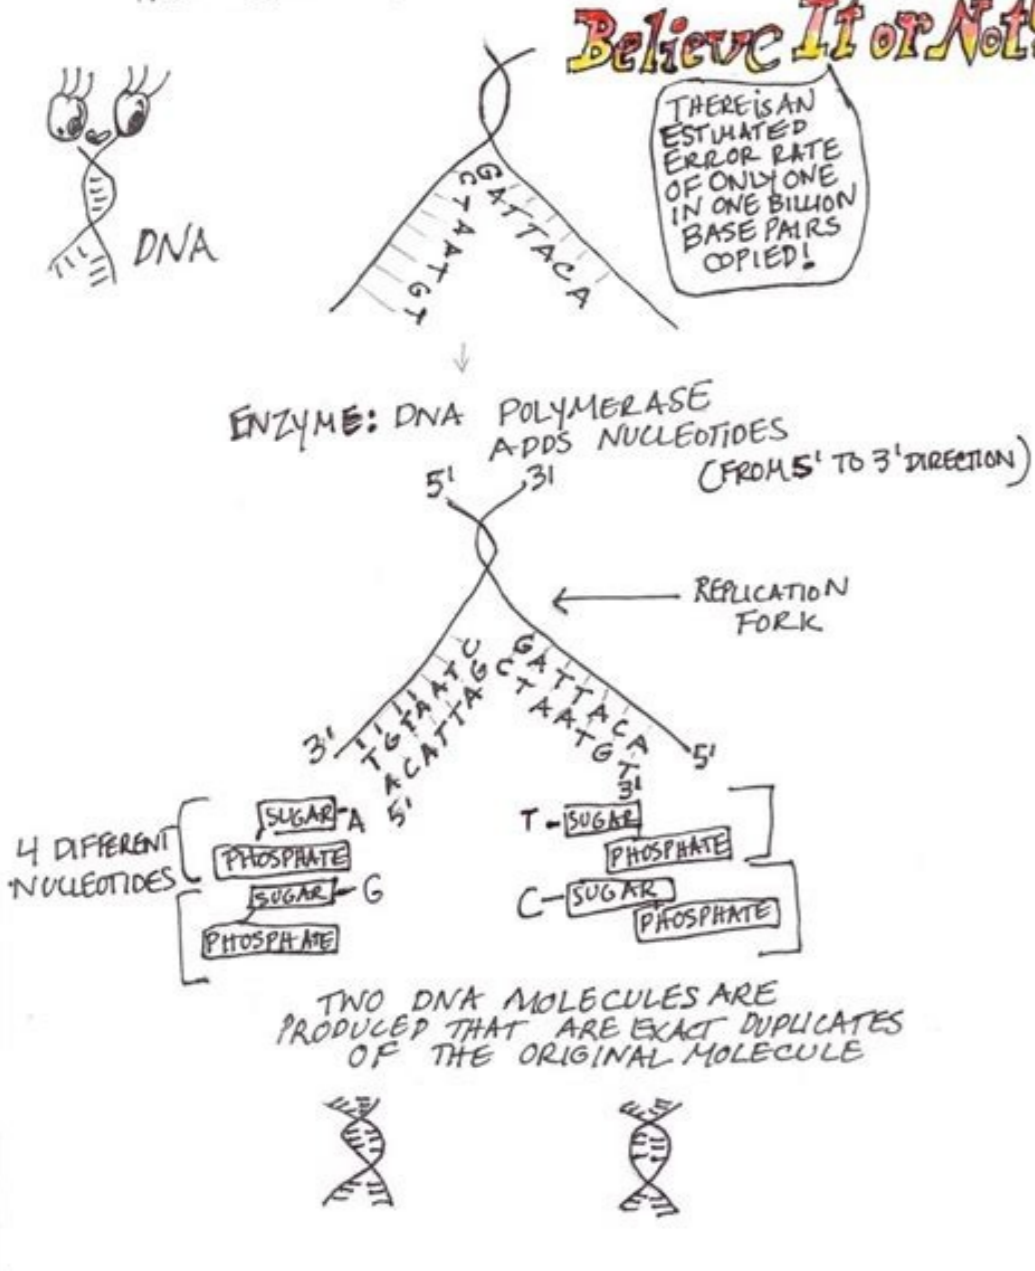 Believe It or Not!
THERE IS AN
ESTIMATED
ERROR RATE
OF ONLY ONE
IN ONE BILLION
BASE PAIRS
COPIED!
DNA
GATTACA
CTAATGT
ENZYME: DNA POLYMERASE
ADDS NUCLEOTIDES
(FROM 5' TO 3' DIRECTION)
5' 3'
REPLICATION
FORK
TGTAATC
ACATTAG
GATTACA
CTAATGT
3'
5'
5'
3'
4 DIFFERENT
NUCLEOTIDES
SUGAR-A
PHOSPHATE
SUGAR-G
PHOSPHATE
T-SUGAR
PHOSPHATE
C-SUGAR
PHOSPHATE
TWO DNA MOLECULES ARE
PRODUCED THAT ARE EXACT DUPLICATES
OF THE ORIGINAL MOLECULE